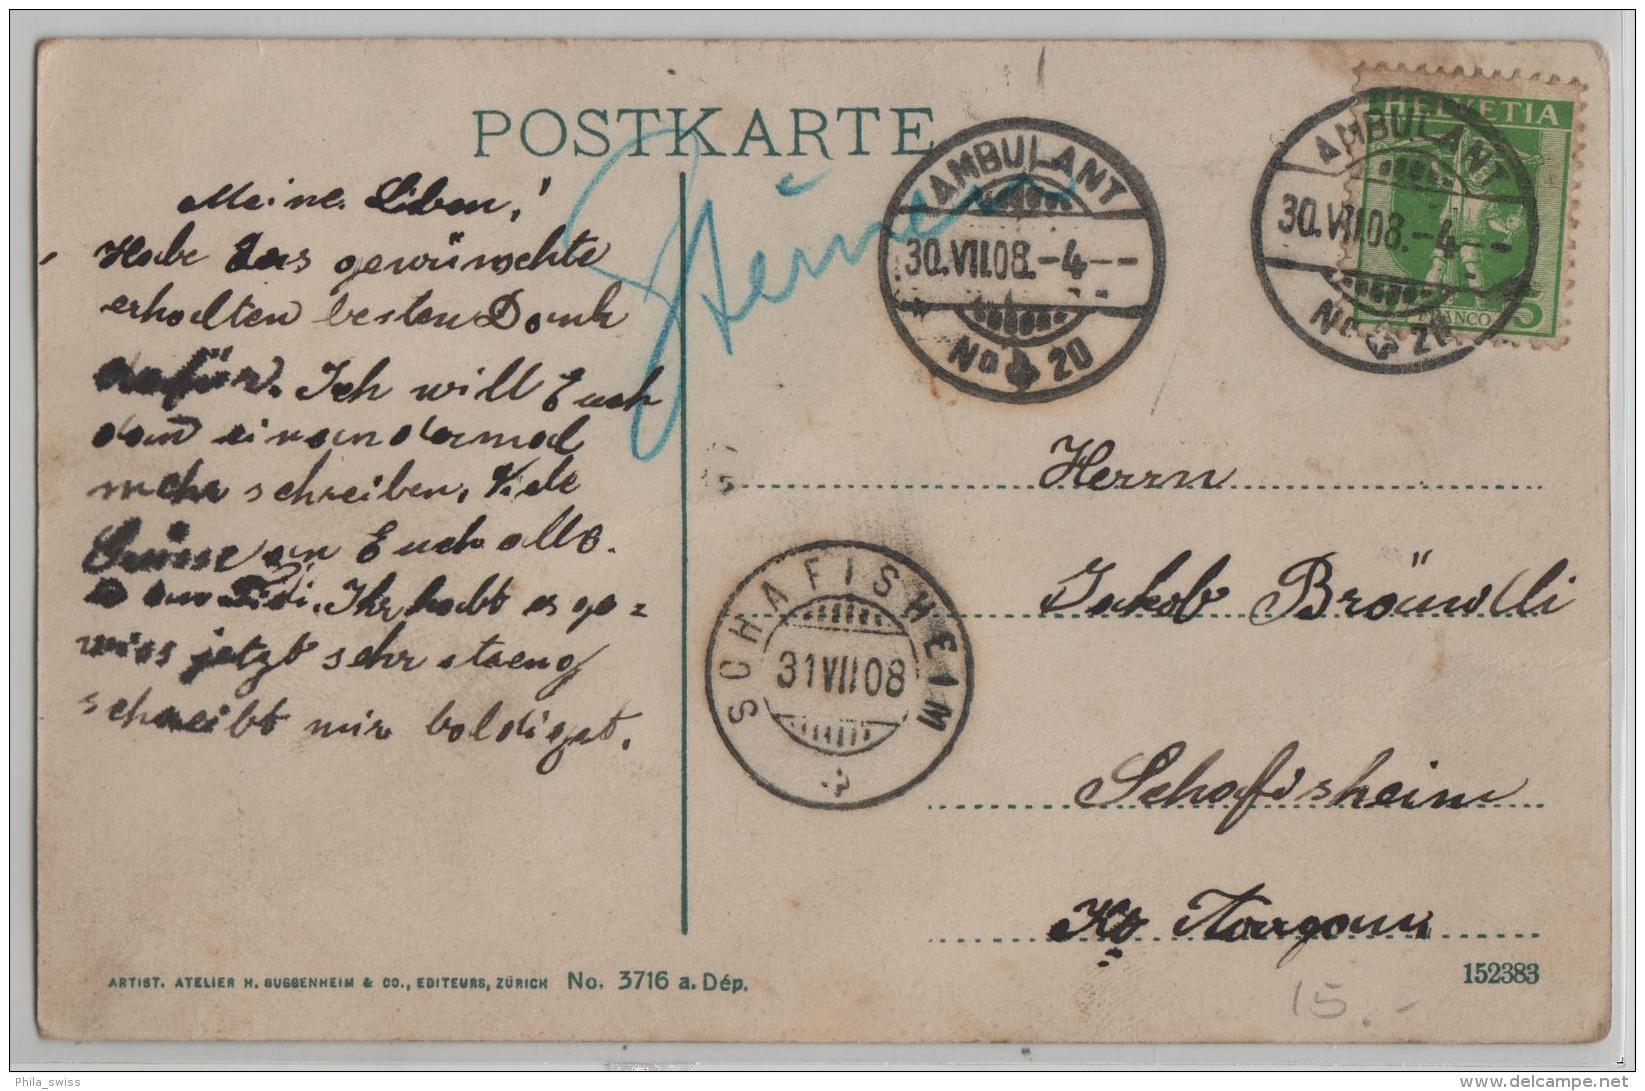 POSTKARTE
Meine Liben!
Habe das gewünschte
erhalten besten Dank
dafür. Ich will Euch
dan einandermal
mehr schreiben. Viele
Grüsse an Euch alle.
Ihr habt es ge=
wiss jetzt sehr streng
schreibt mir baldigst.
AMBULANT
30.VII.08.-4--
No 20
HELVETIA
FRANCO 5
AMBULANT
30.VII.08.-4--
No 20
SCHAFISHEIM
31 VII 08
Herrn
Jakob
Schafisheim
Kt Aargau
ARTIST. ATELIER H. GUGGENHEIM & CO., EDITEURS, ZÜRICH No. 3716 a. Dép.
152383
15.-
Phila_swiss
delcampe.net